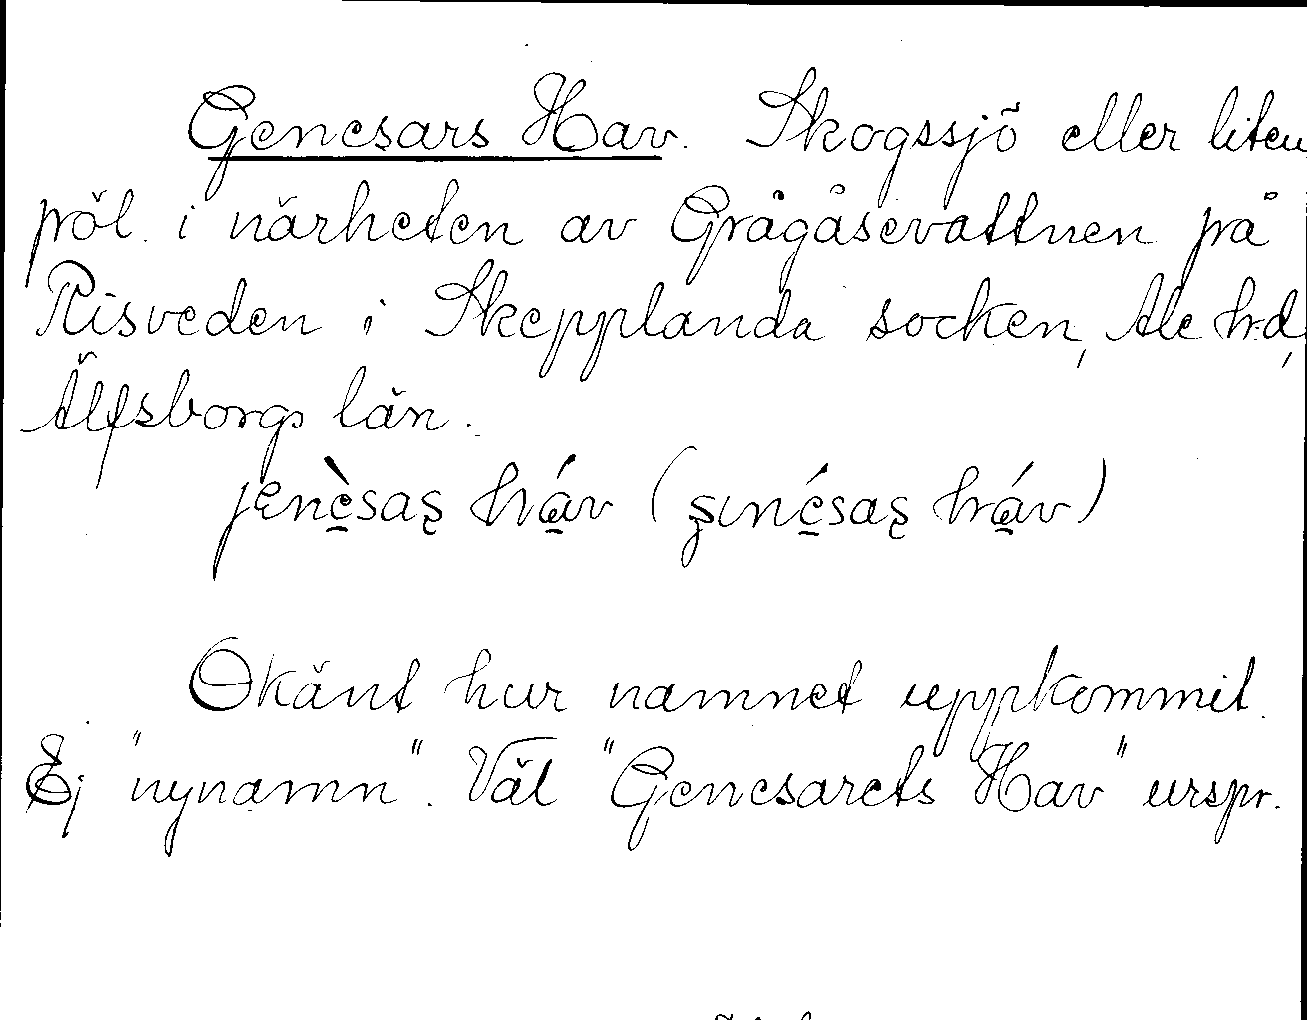 Genesars Hav. Skogssjö eller liten
pöl i närheten av Grågåsevattnen på
Risveden i Skepplanda socken, Ale hd,
Älfsborgs län.
jenèsas háv (sınésas háv)
Okänt hur namnet uppkommit.
Ej "nynamn". Väl "Genesarets Hav" urspr.